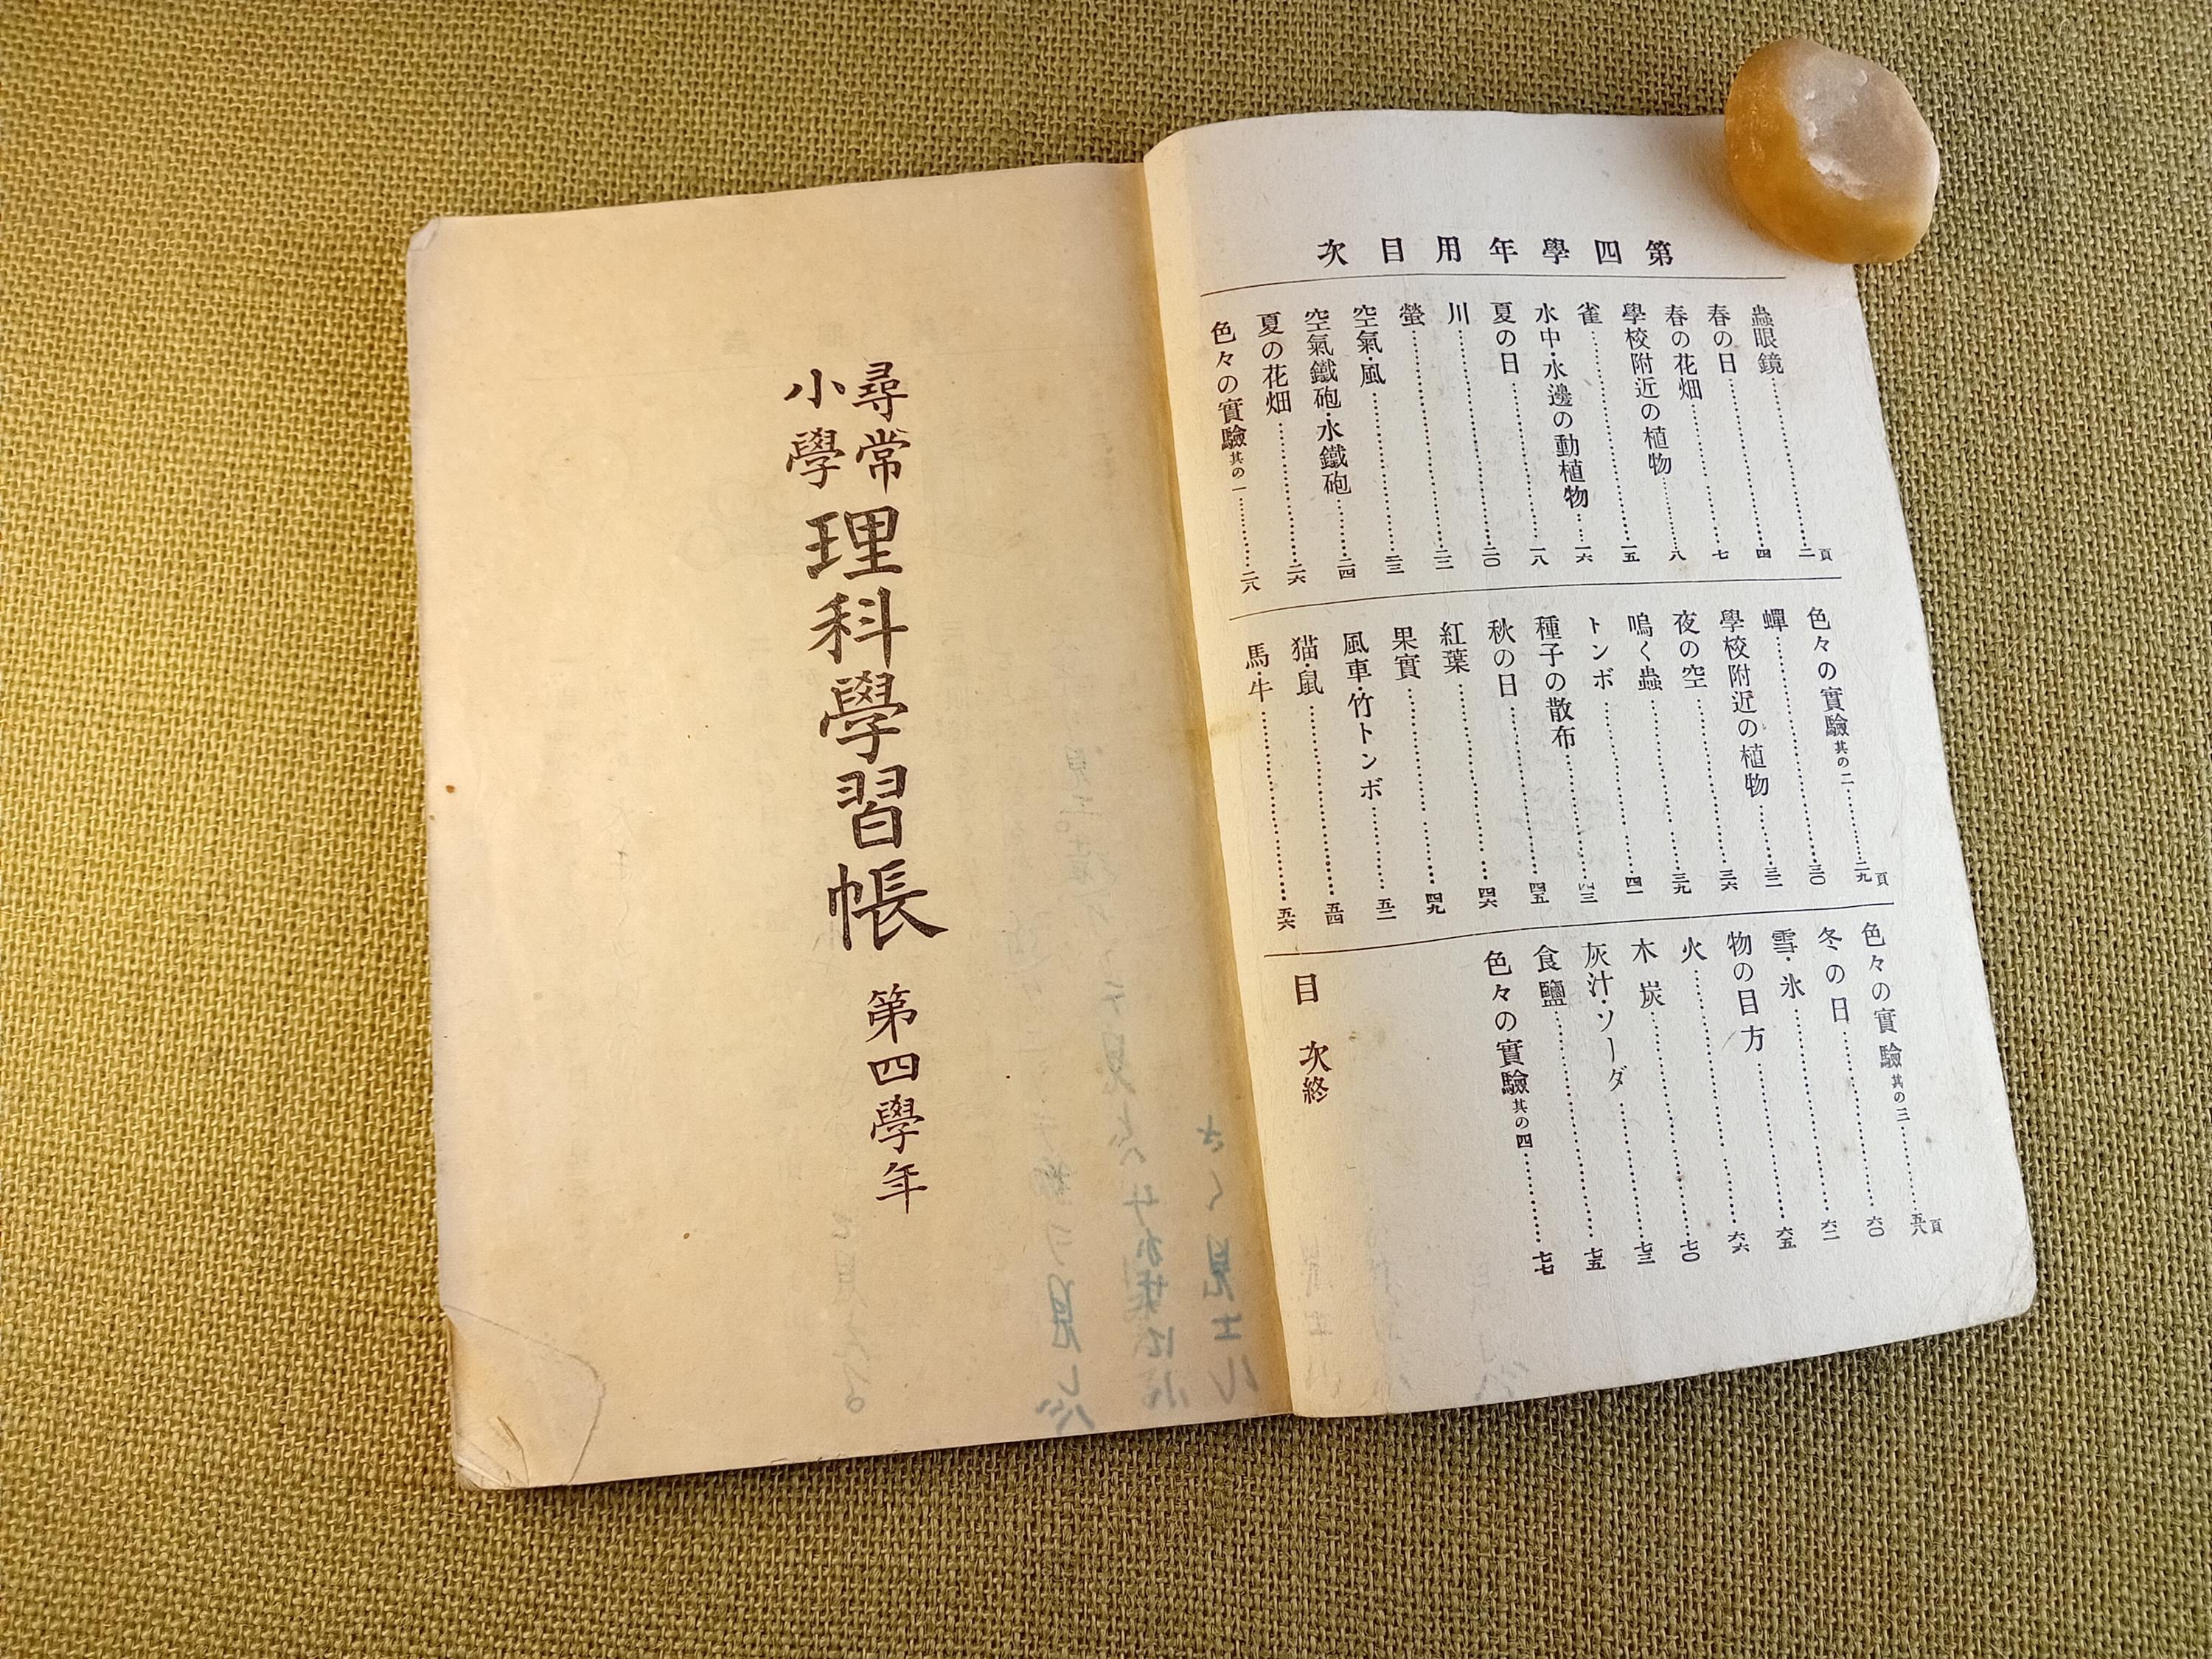 第四學年用目次
蟲眼鏡……二頁
春の日……四
春の花畑……七
學校附近の植物……八
雀……一五
水中・水邊の動植物……一六
夏の日……一八
川……二〇
螢……二二
空氣・風……二三
空氣鐵砲・水鐵砲……二四
夏の花畑……二六
色々の實驗其の一……二八
色々の實驗其の二……二九頁
蟬……三〇
學校附近の植物……三二
夜の空……三六
鳴く蟲……三九
トンボ……四一
種子の散布……四三
秋の日……四五
紅葉……四六
果實……四九
風車・竹トンボ……五二
猫・鼠……五四
馬・牛……五六
色々の實驗其の三……五八頁
冬の日……六〇
雪・氷……六二
物の目方……六五
火……六六
木炭……七〇
灰汁・ソーダ……七三
食鹽……七五
色々の實驗其の四……七七
目次終
尋常小學理科學習帳 第四學年